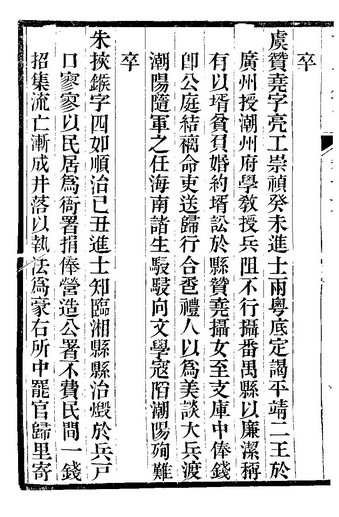 卒
虞贊堯字亮工崇禎癸未進士兩粵底定謁平靖二王於
廣州授潮州府學教授兵阻不行攝番禺縣以廉潔稱
有以壻貧負婚約壻訟於縣贊堯攝女至支庫中俸錢
卽公庭結褵命吏送歸行合卺禮人以爲美談大兵渡
潮陽隨軍之任海南諸生駸駸向文學寇陷潮陽殉難
卒
朱挾鍭字四如順治己丑進士知臨湘縣縣治燬於兵戸
口寥寥以民居爲衙署捐俸營造公署不費民間一錢
招集流亡漸成井落以執法爲豪右所中罷官歸里寄